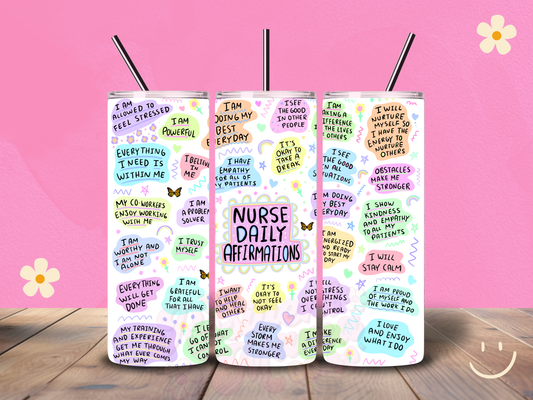 I AM
ALLOWED TO
FEEL STRESSED
I AM
POWERFUL
EVERYTHING
I NEED IS
WITHIN ME
I BELIEVE
IN
ME
MY CO-WORKERS
ENJOY WORKING
WITH ME
I AM
A PROBLEM
SOLVER
I AM
WORTHY AND
I AM NOT
ALONE
I TRUST
MYSELF
EVERYTHING
WILL GET
DONE
I AM
GRATEFUL
FOR ALL
THAT I HAVE
MY TRAINING
AND EXPERIENCE
GET ME THROUGH
WHAT EVER COMES
MY WAY
I LE
GO OF
I CAN
CON
I AM
DOING MY
BEST
EVERYDAY
I SEE
THE GOOD
IN OTHER
PEOPLE
IT'S
OKAY TO
TAKE A
BREAK
I HAVE
EMPATHY
FOR ALL OF
MY PATIENTS
NURSE
DAILY
AFFIRMATIONS
I WANT
TO HELP
AND HEAL
OTHERS
IT'S
OKAY TO
NOT FEEL
OKAY
HAT
NOT
TROL
EVERY
STORM
MAKES ME
STRONGER
I AM
MAKING A
DIFFERENCE
THE LIVES
OTHERS
I WILL
NURTURE
MYSELF SO
I HAVE THE
ENERGY TO
NURTURE
OTHERS
I SEE
THE GOOD
IN ALL
SITUATIONS
OBSTACLES
MAKE ME
STRONGER
AM DOING
MY BEST
EVERYDAY
I SHOW
KINDNESS
AND EMPATHY
TO ALL MY
PATIENTS
I AM
ENERGIZED
AND READY
TO START MY
DAY
I WILL
STAY CALM
I AM PROUD
OF MYSELF AND
THE WORK I DO
I LOVE
AND ENJOY
WHAT I DO